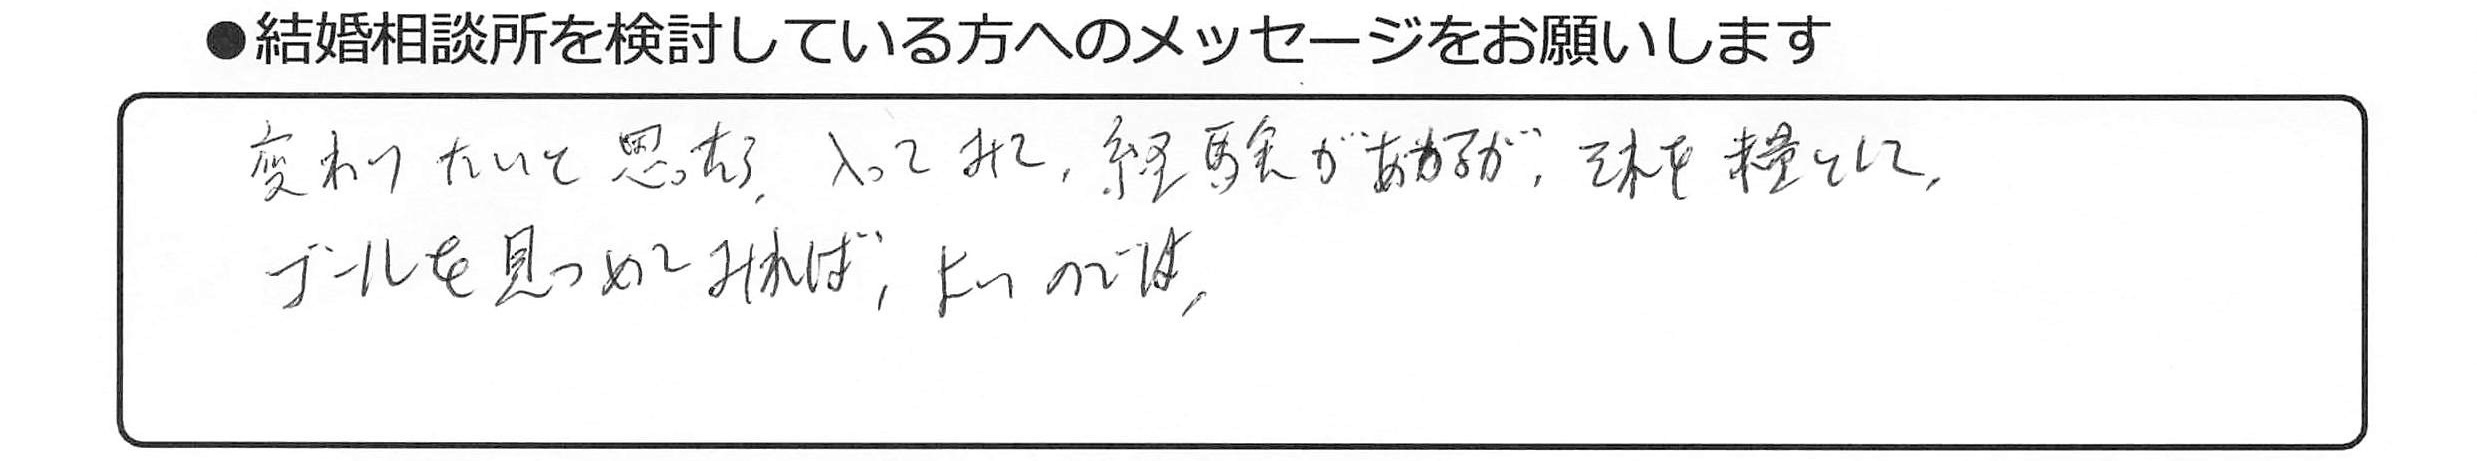 ●結婚相談所を検討している方へのメッセージをお願いします
変わりたいと思ったら、入ってみて、経験があるが、それを糧として、
ゴールを見つめてみれば、よいのでは、